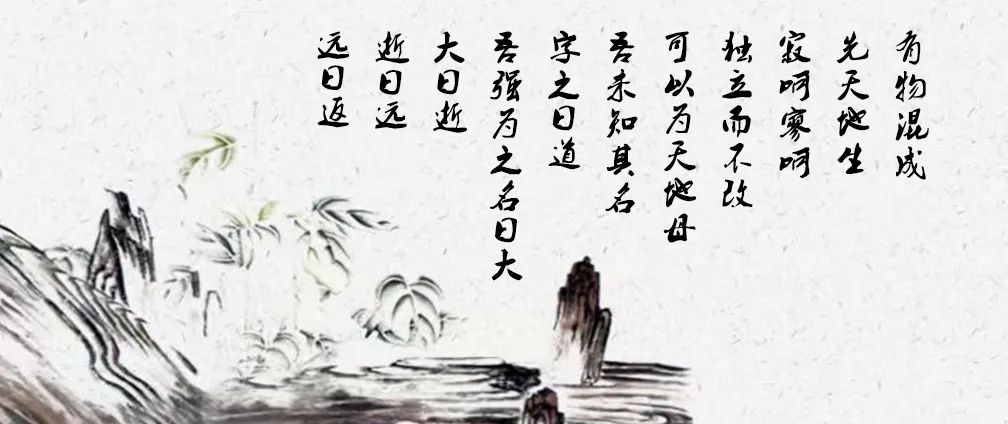 有物混成
先天地生
寂呵寥呵
独立而不改
可以为天地母
吾未知其名
字之曰道
吾强为之名曰大
大曰逝
逝曰远
远曰返